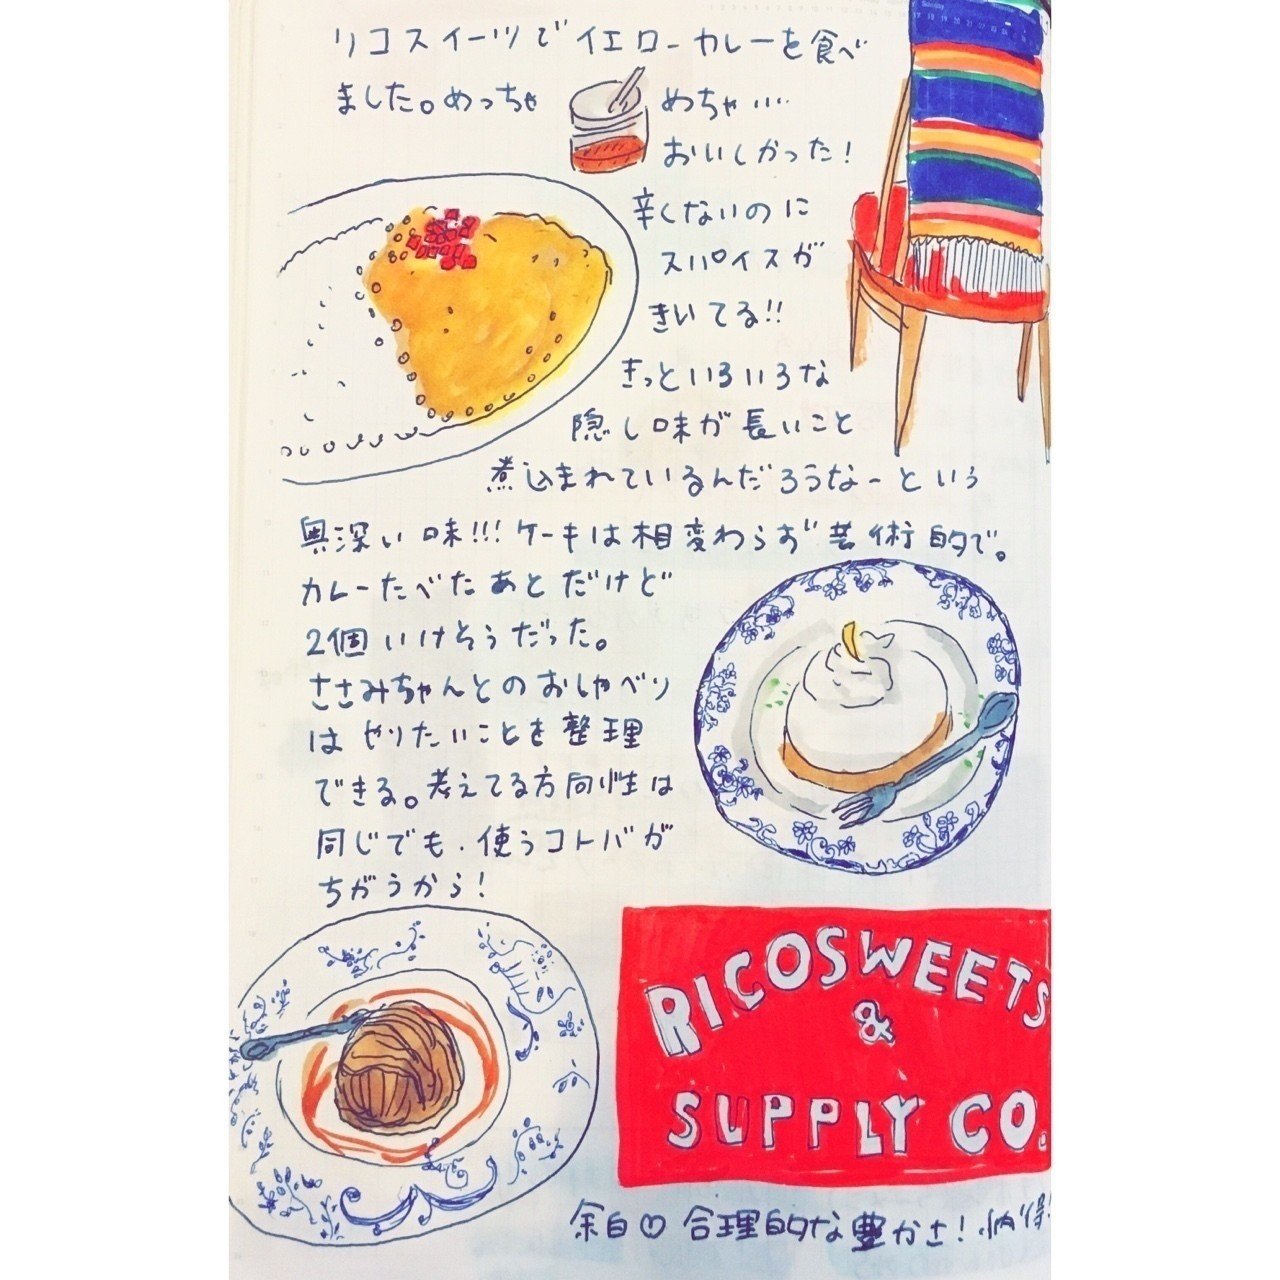 リコスイーツでイエローカレーを食べ
ました。めっちゃ めちゃ…
おいしかった!
辛くないのに
スパイスが
きいてる!!
きっといろいろな
隠し味が長いこと
煮込まれているんだろうなーという
奥深い味!!!ケーキは相変わらず芸術的で。
カレーたべたあとだけど
2個いけそうだった。
ささみちゃんとのおしゃべり
はやりたいことを整理
できる。考えてる方向性は
同じでも、使うコトバが
ちがうから!
RICOSWEETS
&
SUPPLY CO.
余白♡合理的な豊かさ!納得!